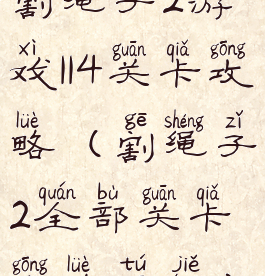 割绳子2游
xì guān qiǎ gōng
戏114关卡攻
lüè gē shéng zǐ
略（割绳子
quán bù guān qiǎ
2全部关卡
gōng lüè tú jiě